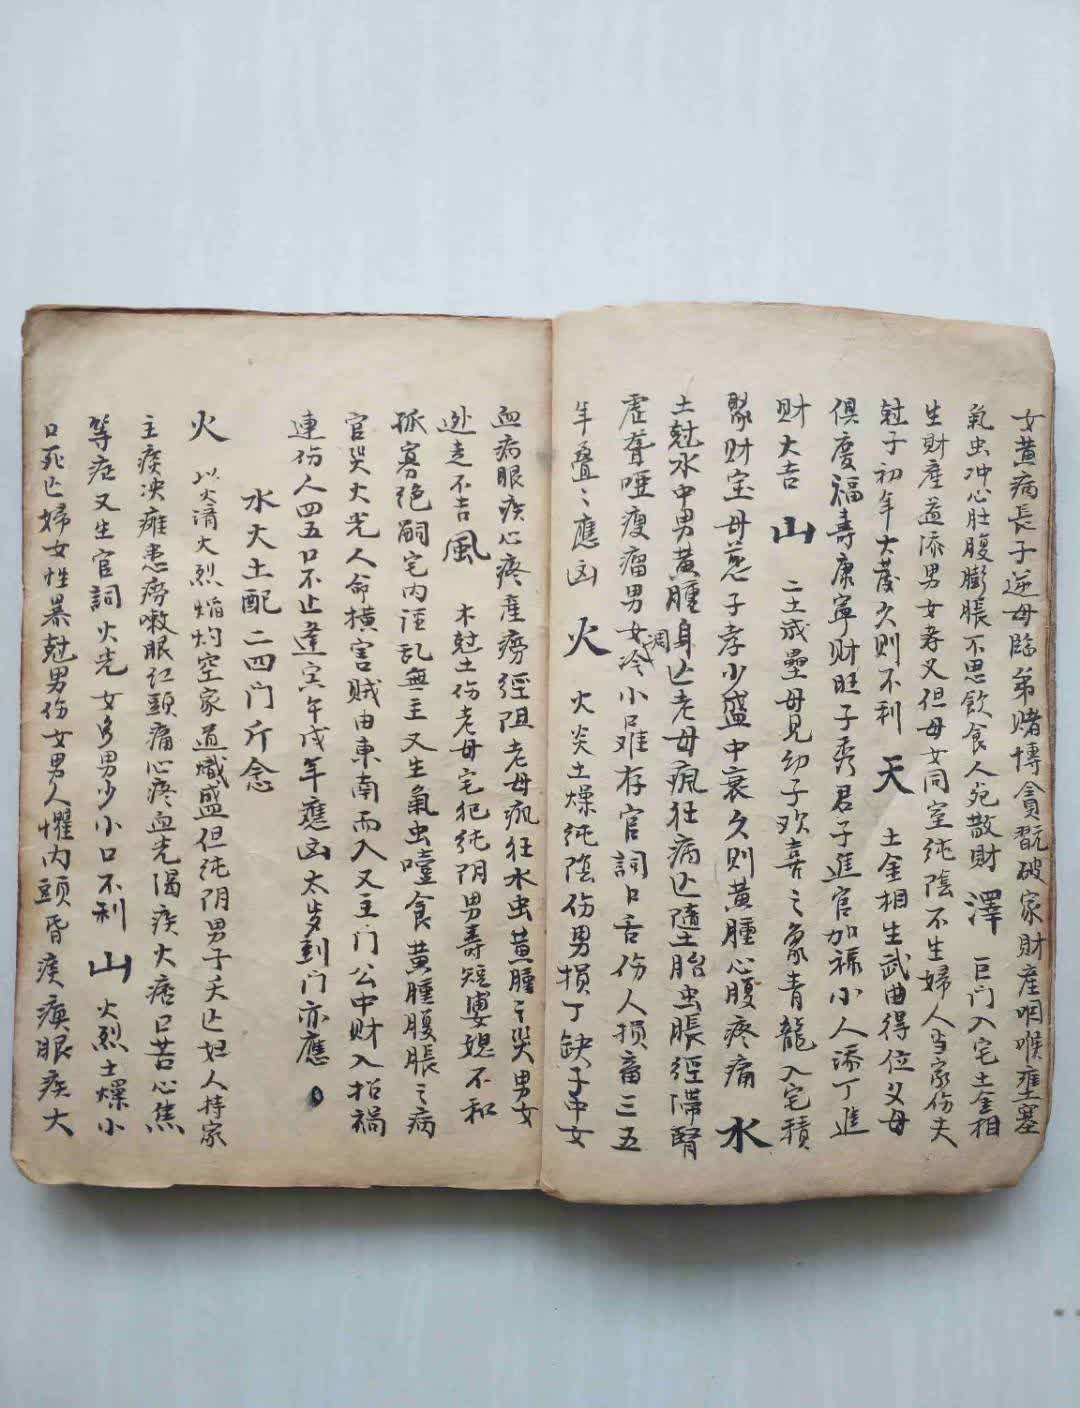 女黄病長子逆母臨弟赌博貪翫破家財產咽喉壅塞
氣虫冲心肚腹膨脹不思飲食人死散財 澤 巨门入宅土金相
生財產益添男女孝义但母女同室纯陰不生婦人当家伤夫
尅子初年大發久则不利 天 土金相生武曲得位父母
俱慶福寿康寧财旺子秀君子進官加禄小人添丁進
财大吉 山 二土成壘母見幼子欢喜之象青龍入宅積
聚财宝母慈子孝少盛中衰久则黄腫心腹疼痛 水
土尅水中男黄腫身亡老母疯狂病亡墮胎虫脹經滞腎
虚聋哑瘦瘤男女冷小口难存官詞口舌伤人损畜三五
调
年叠〻應凶 火 火炎土燥纯陰伤男損丁缺子中女
血病眼疾心疼產痨經阻老母疯狂水虫黄腫之災男女
迯走不吉 風 木尅土伤老母宅犯纯阴男寿短婆媳不和
孤寡绝嗣宅内谣乱無主又生氣虫噎食黄腫腹脹之病
官災火光人命横害贼由東南而入又主门公中财入招禍
連伤人四五口不止逢寅午戌年應凶太岁到门亦應
水火土配二四门斤念
火 以火猜火烈焰灼空家道熾盛但纯阴男子夭亡妇人持家
主痰决瘫患痨嗽眼红頭痛心疼血光渴疾大痞口苦心焦
等症又生官詞火光女多男少小口不利 山 火烈土燥小
口死亡婦女性暴尅男伤女男人懼内頭昏痰痪眼疾大